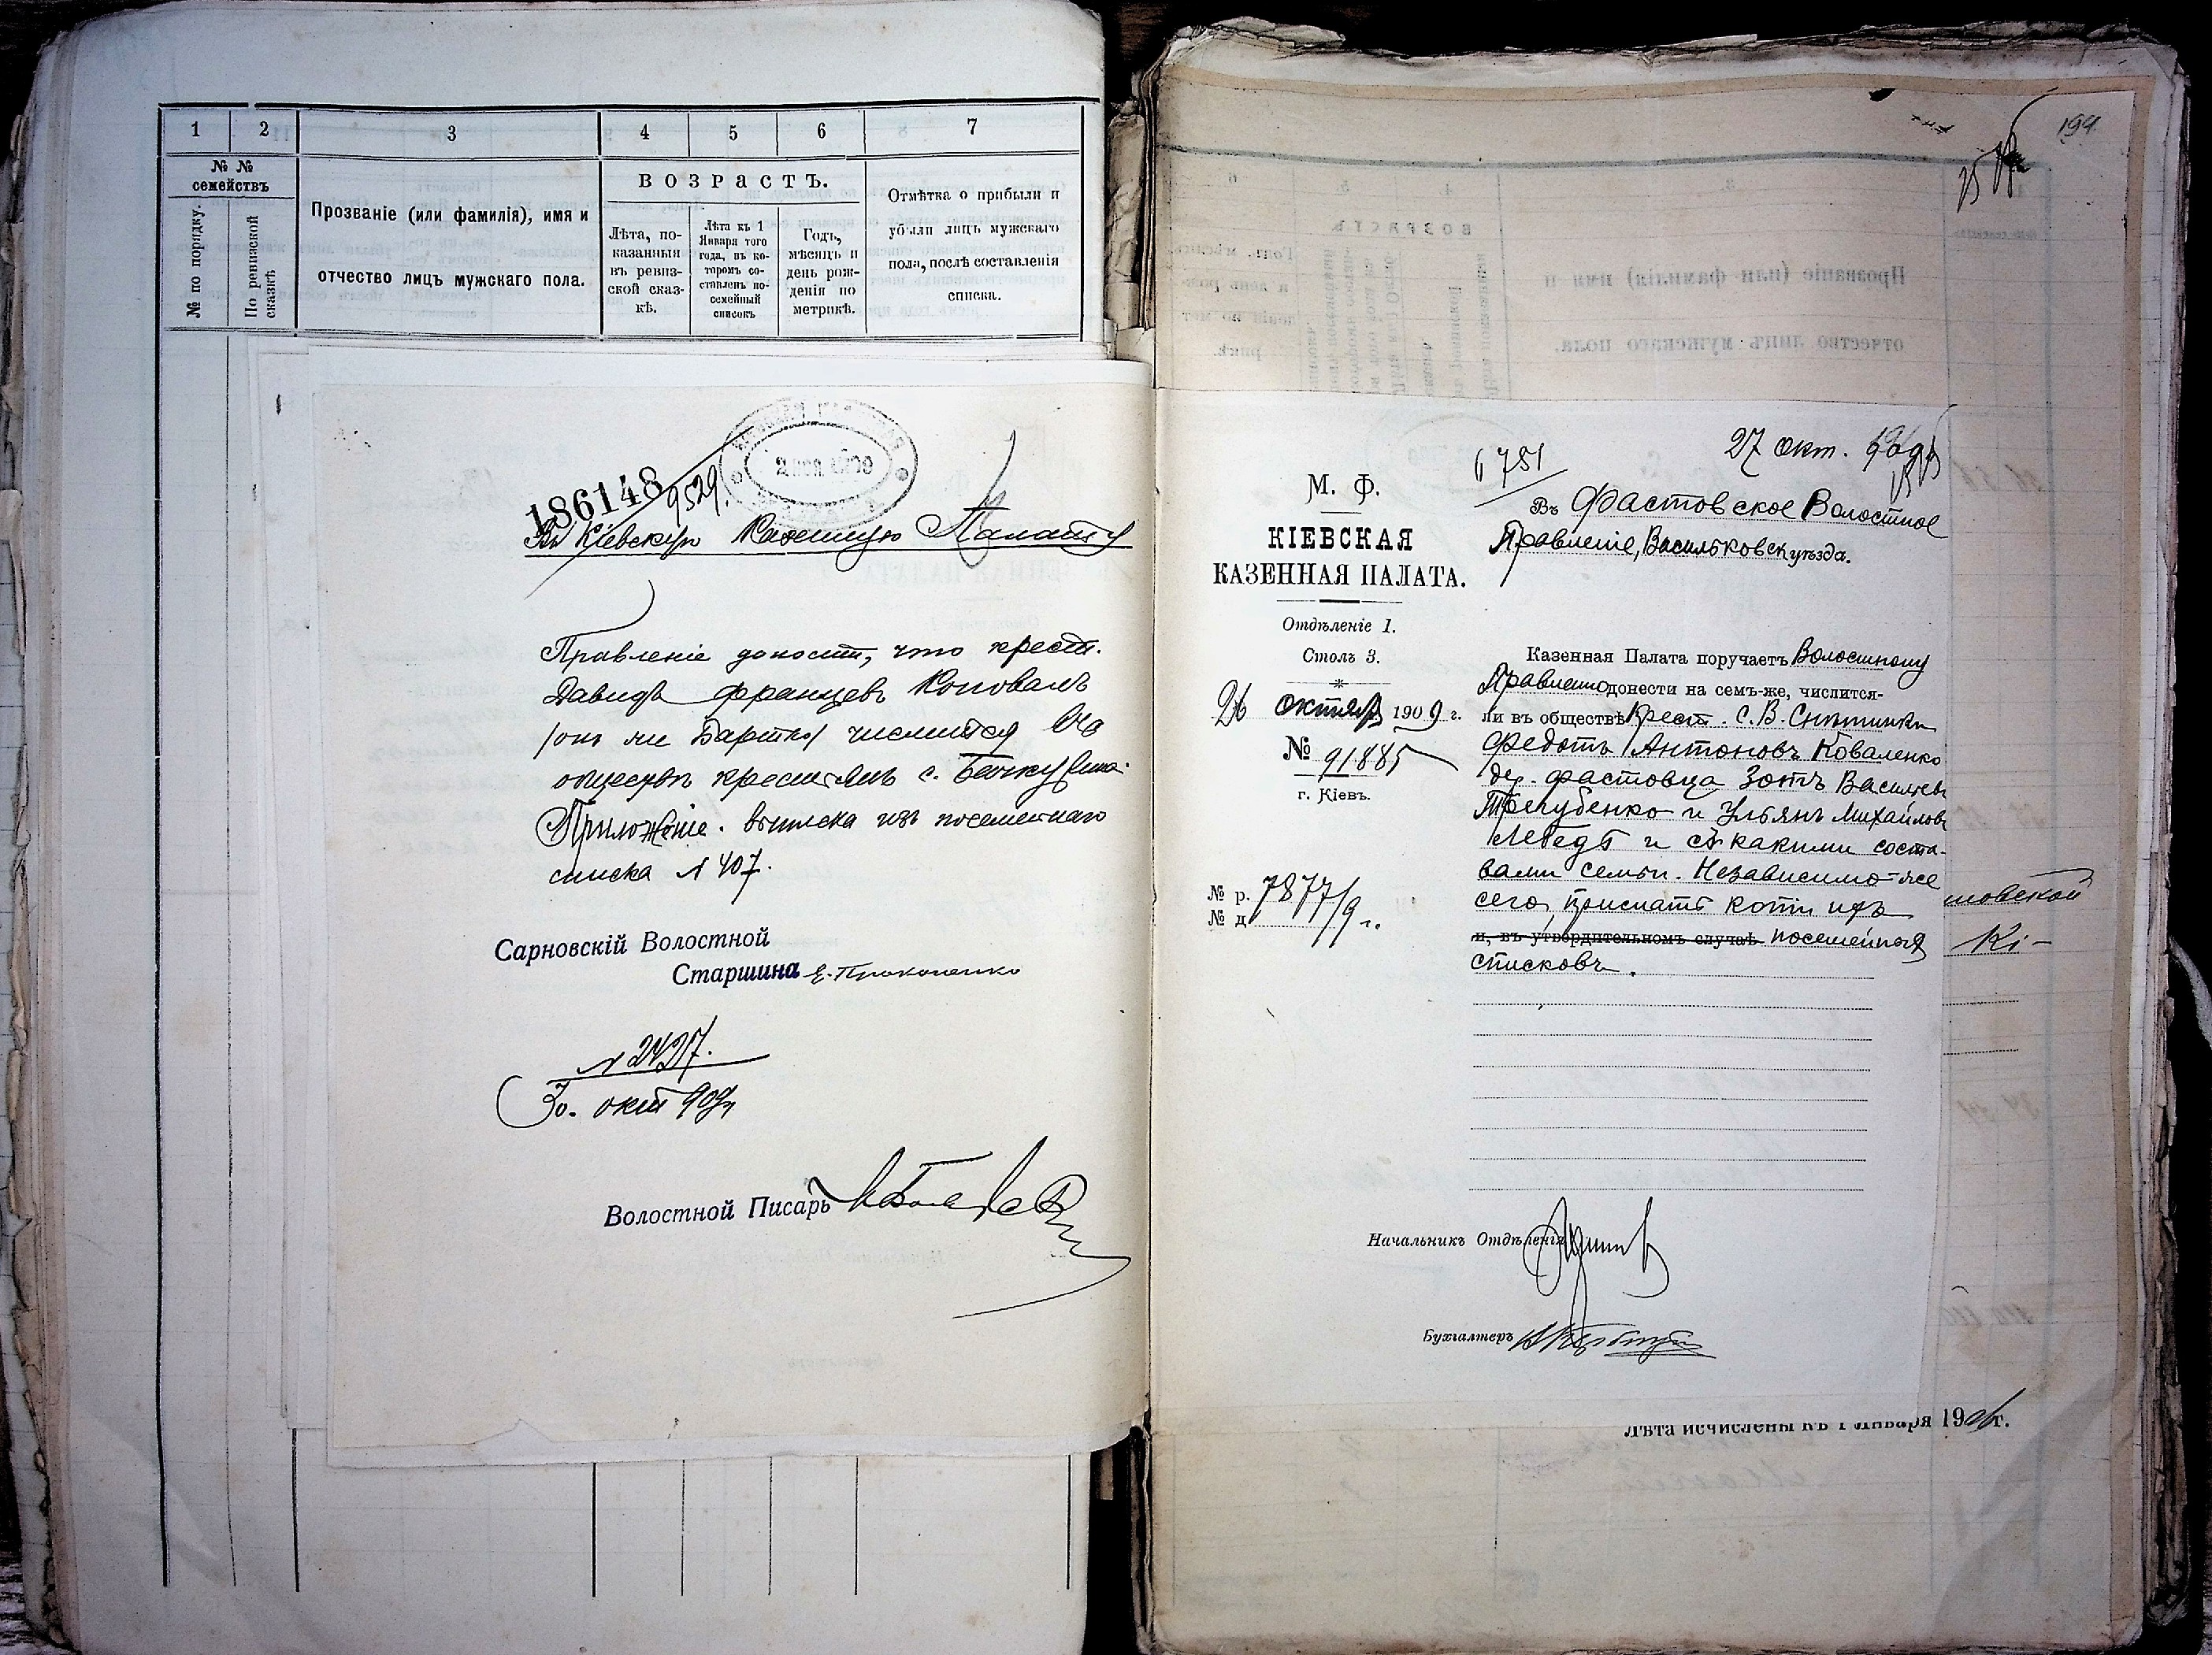 1
2
3
4
5
6
7
№ №
семействъ
№ по порядку.
По ревизской
сказкѣ
Прозваніе (или фамилія), имя и
отчество лицъ мужскаго пола.
ВОЗРАСТЪ.
Лѣта, по-
казанныя
въ ревиз-
ской сказ-
кѣ.
Лѣта къ 1
Января того
года, въ ко-
торомъ со-
ставленъ по-
семейный
списокъ
Годъ,
мѣсяцъ и
день рож-
денія по
метрикѣ.
Отмѣтка о прибыли и
убыли лицъ мужскаго
пола, послѣ составленія
списка.
186148
9529
Въ Кіевскую Казенную Палату
Правленіе доносит, что крест.
Давидъ францевъ Коновалъ
/он ли Бартко/ числится
обществѣ крестьянъ с.
Приложеніе. выписка изъ посемейнаго
списка № 407.
Сарновскій Волостной
Старшина Е. Прокопенко
№ 2427.
30. окт 909 г
Волостной Писарь
194
27 окт. 1909
6751
М. Ф.
КІЕВСКАЯ
КАЗЕННАЯ ПАЛАТА.
Отдѣленіе 1.
Столъ 3.
26 октября 1909 г.
№ 91885
г. Кіевъ.
№ р. 7877/9 г.
№ д.
Въ Фастовское Волостное
Правленіе, Васильковск уѣзда.
Казенная Палата поручаетъ Волостному
Правленію донести на семъ-же, числится-
ли въ обществѣ крест. с. В. Снѣтинки
Федотъ Антоновъ Коваленко
дер. Фастовца Зотъ Васильевъ
Трегубенко и Ульянъ Михайловъ
Лебедь и съ какими соста-
вами семьи. Независимо-же
сего, прислать копіи ихъ
и, въ утвердительномъ случаѣ посемейныхъ
списковъ.
Начальникъ Отдѣленія
Бухгалтеръ
новской
Кі-
Лѣта исчислены къ 1 Января 1906 г.